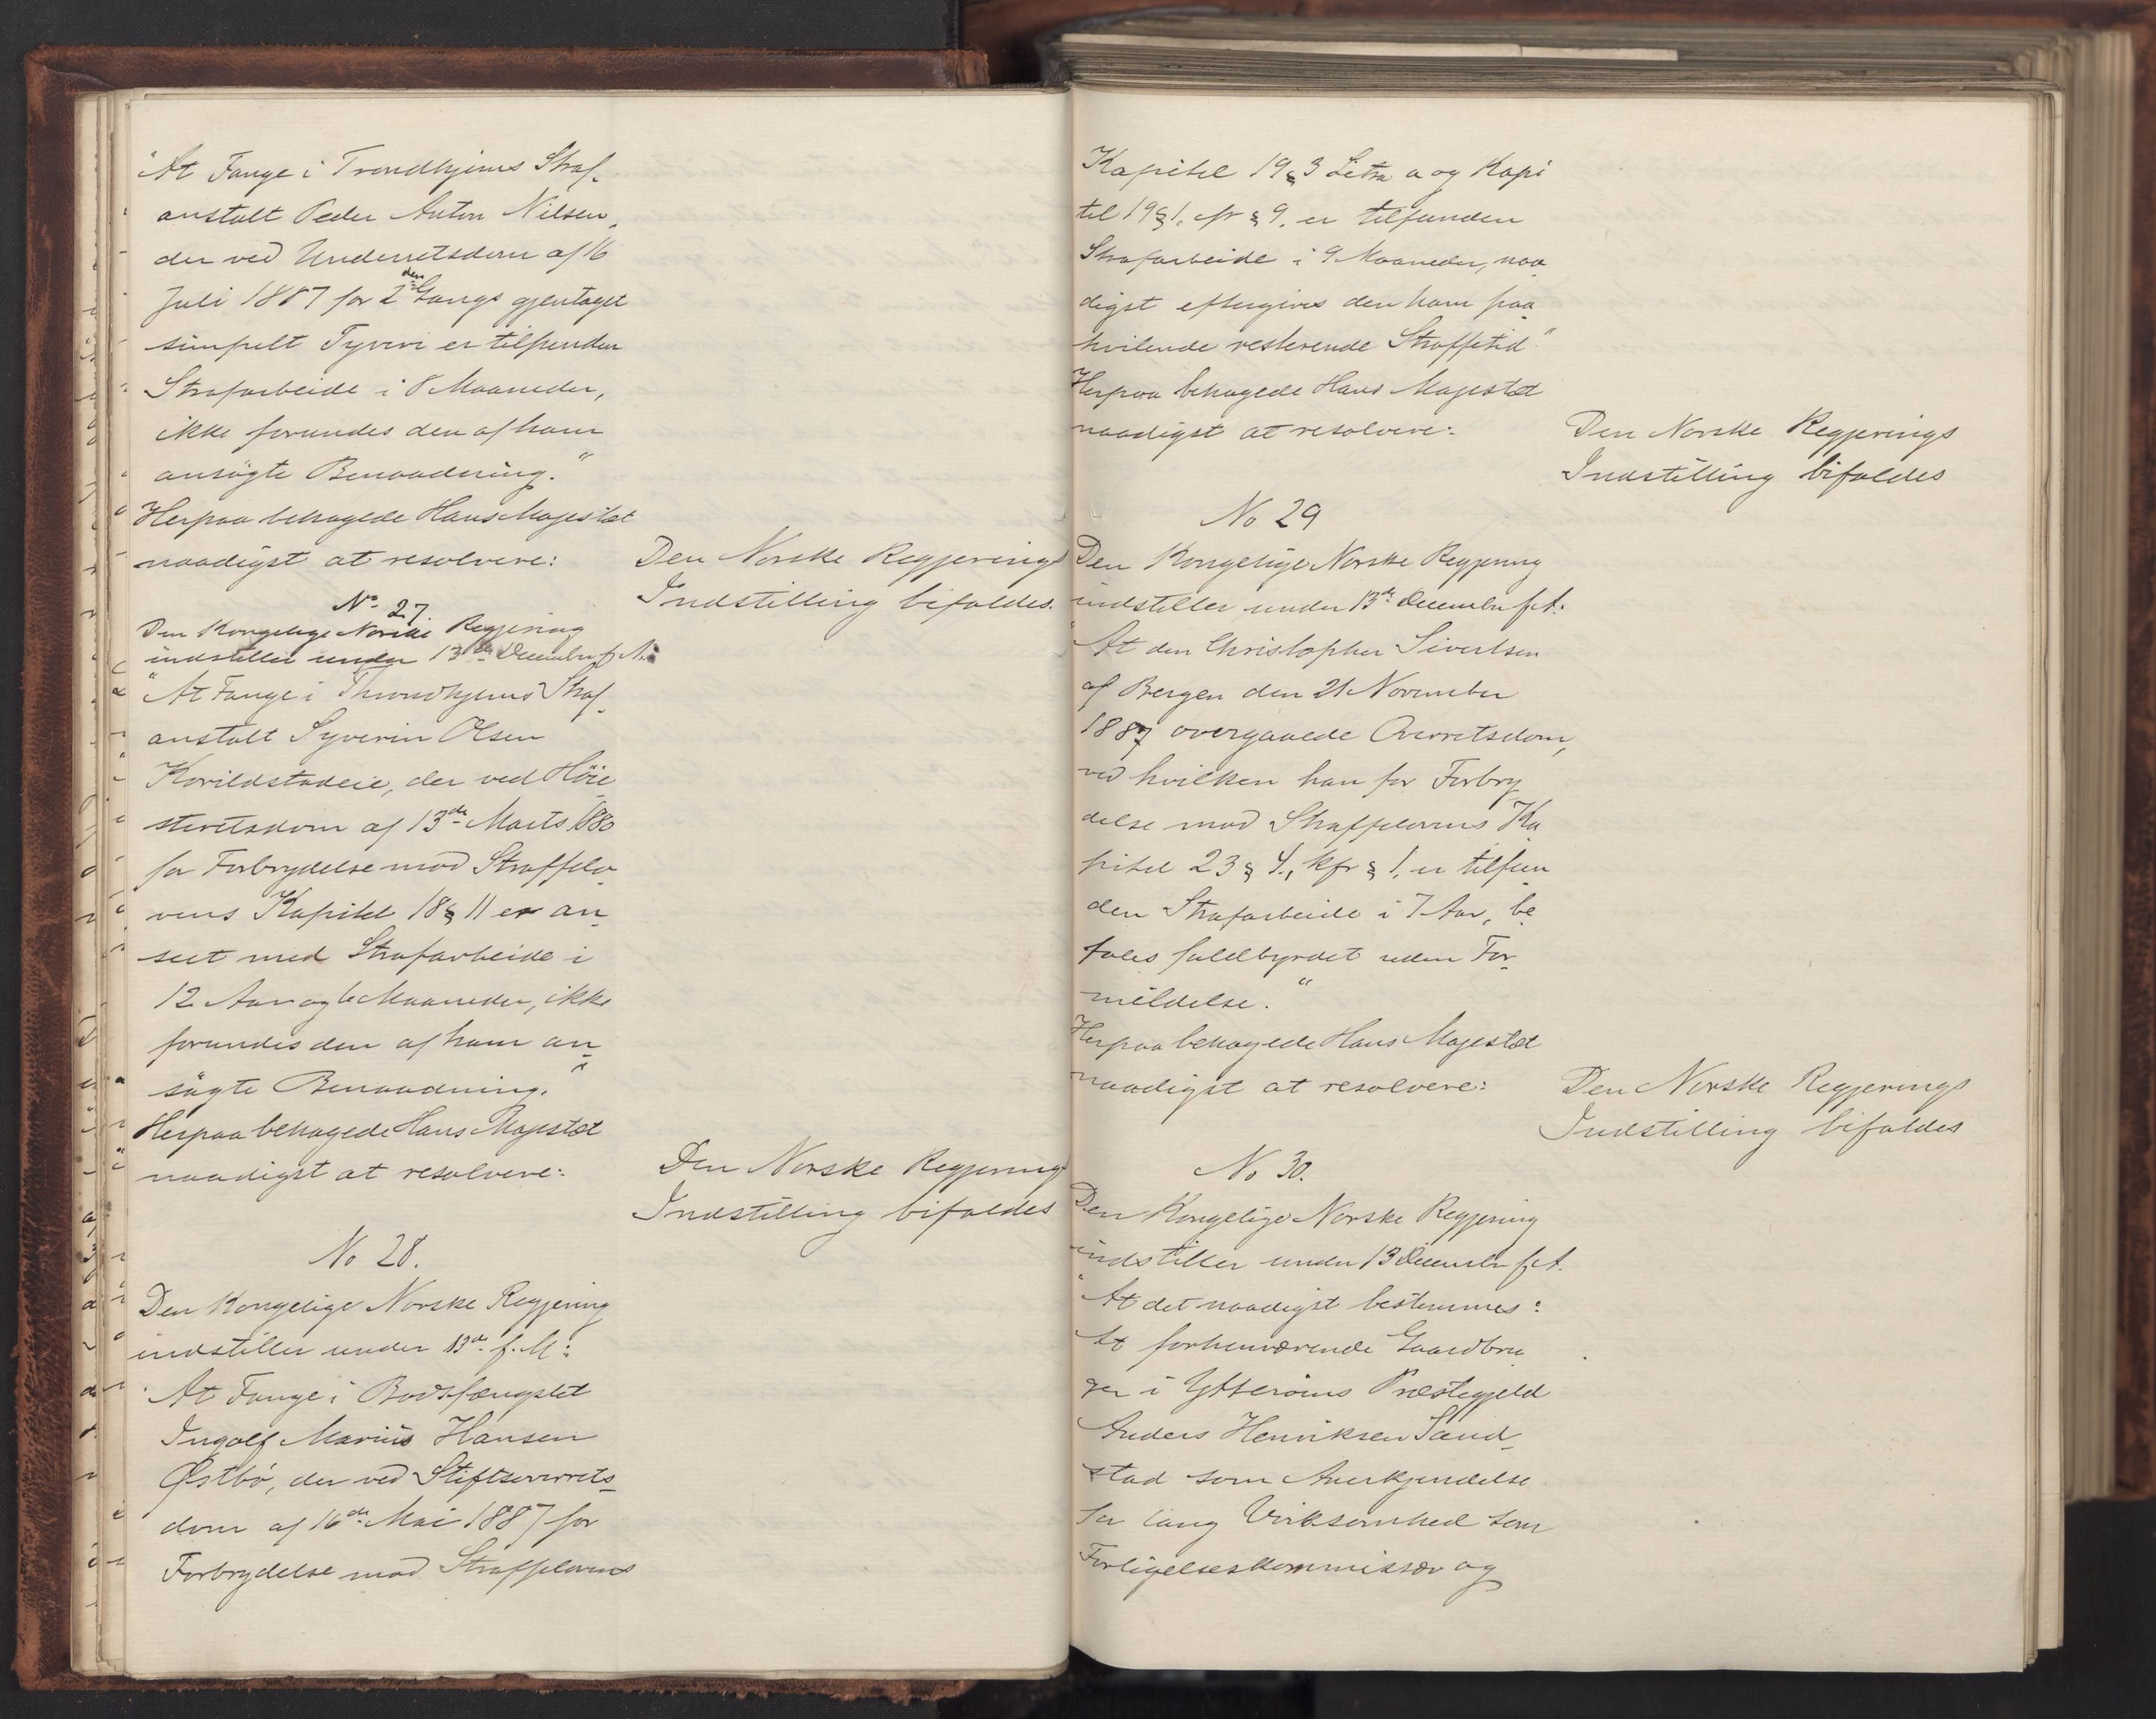 "At Fange i Trondhjems Straf-
anstalt Peder Anton Nilsen,
der ved Underretsdom af 16
Juli 1887 for 2den Gangs gjentaget
simpelt Tyveri er tilfunden
Strafarbeide i 8 Maaneder,
ikke forundes den af ham
ansøgte Benaadning."
Herpaa behagede Hans Majestæt
naadigst at resolvere:
Den Norske Regjerings
Indstilling bifaldes.
No. 27.
Den Kongelige Norske Regjering
indstiller under 13de December f. A.:
"At Fange i Throndhjems Straf-
anstalt Syverin Olsen
Korildstadeie, der ved Høie-
steretsdom af 13de Marts 1880
for Forbrydelse mod Straffelo-
vens Kapitel 18 § 11 er an-
seet med Strafarbeide i
12 Aar og 6 Maaneder, ikke
forundes den af ham an-
søgte Benaadning."
Herpaa behagede Hans Majestæt
naadigst at resolvere:
Den Norske Regjerings
Indstilling bifaldes
No 28.
Den Kongelige Norske Regjering
indstiller under 13de f. M:
"At Fange i Bodsfængslet
Ingolf Marius Hansen
Østbø, der ved Stiftsoverrets-
dom af 16de Mai 1887 for
Forbrydelse mod Straffelovens
Kapitel 19 § 3 Litra a og Kapi
tel 19 § 1, cfr § 9, er tilfunden
Strafarbeide i 9 Maaneder, naa
digst eftergives den ham paa
hvilende resterende Straffetid"
Herpaa behagede Hans Majestæt
naadigst at resolvere:
Den Norske Regjerings
Indstilling bifaldes
No 29
Den Kongelige Norske Regjering
indstiller under 13de December f. A:
"At den Christopher Sivertsen
af Bergen den 21 November
1887 overgaaede Overretsdom,
ved hvilken han for Forbry
delse mod Straffelovens Ka
pitel 23 § 4, kfr § 1, er tilfun
den Strafarbeide i 7 Aar, be
fales fuldbyrdet uden For-
mildelse."
Herpaa behagede Hans Majestæt
naadigst at resolvere:
Den Norske Regjerings
Indstilling bifaldes
No 30.
Den Kongelige Norske Regjering
indstiller under 13 December f. A.
"At det naadigst bestemmes:
At forhenværende Gaardbru
ger i Ytterøens Præstegjeld
Anders Henriksen Sand-
stad som Anerkjendelse
for lang Virksomhed som
Forligelseskommissær og